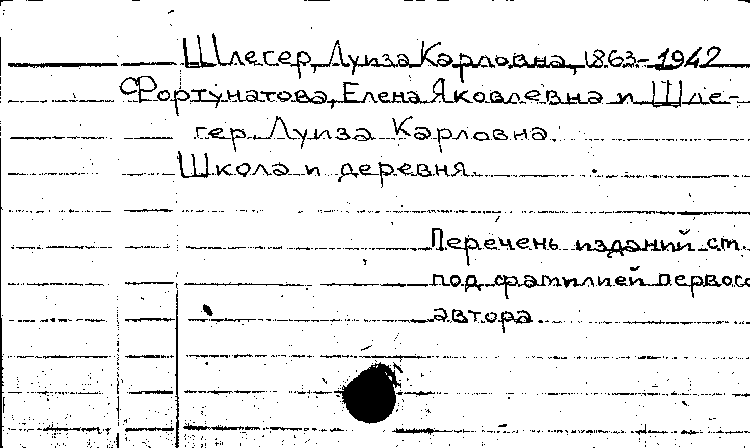 Шлегер, Луиза Карловна, 1863-1942
Фортунатова, Елена Яковлевна и Шле-
гер, Луиза Карловна.
Школа и деревня.
Перечень изданий см.
под фамилией первого
автора.